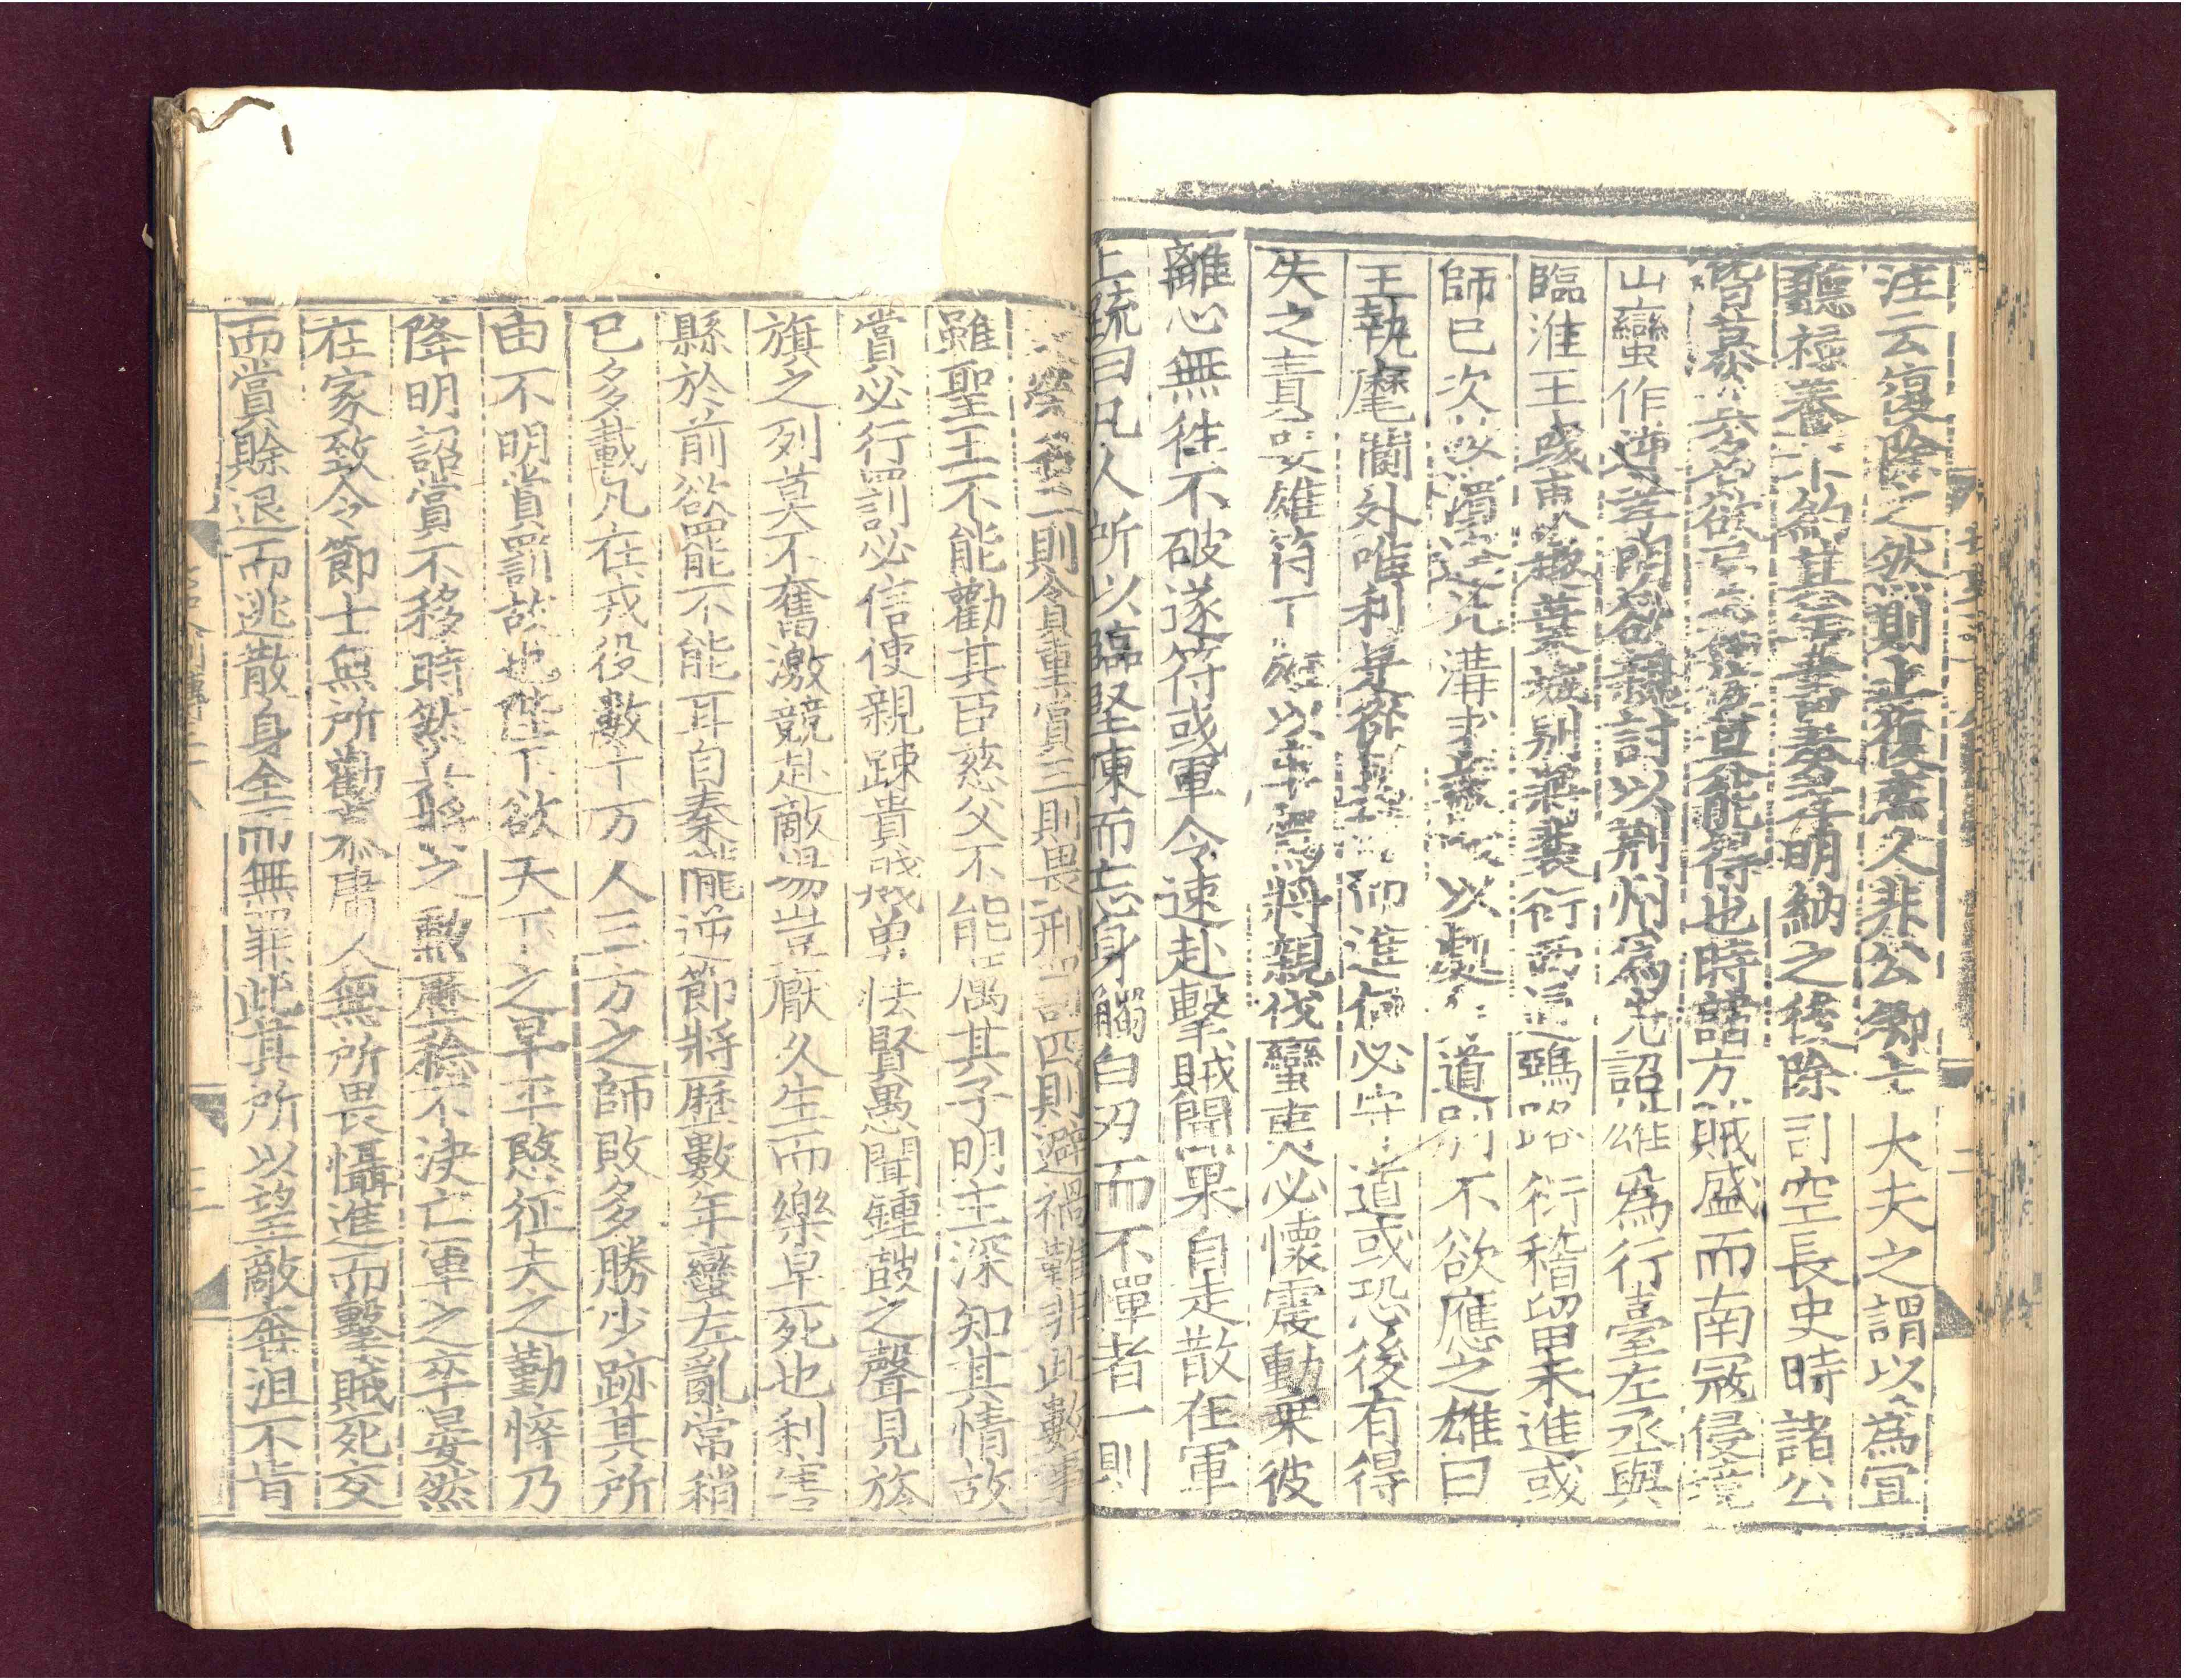 注云復除之然則止復無久非公卿士大夫之謂以為宜
聽祿養不約其年書奏孝明納之後除司空長史時諸公
皆慕其名欲屈為佐莫能得也時諸方賊盛而南寇侵境
山蠻作逆孝明欲親討以荊州為先詔雄為行臺左丞與
臨淮王彧東趣葉城別將裴衍西通鵶路衍稽留未進或
師已次汝濱逢北溝求救以處分道別不欲應之雄曰
王執麾閫外唯利是從見可而進何必守道或恐後有得
失之責要雄符下雄以車駕將親伐蠻夷必懷震動乘彼
離心無往不破遂符或軍令速赴擊賊聞果自走散在軍
上疏曰凡人所以臨堅陳而忘身觸白刃而不憚者一則
求榮名二則貪重賞三則畏刑罰四則避禍難非此數事
雖聖王不能勸其臣慈父不能厲其子明主深知其情故
賞必行罰必信使親踈貴賤勇怯賢愚聞鍾鼓之聲見旌
旗之列莫不奮激競赴敵場豈厭久生而樂早死也利害
縣於前欲罷不能耳自秦隴逆節將歷數年蠻左亂常稍
已多載凡在戎役數十万人三方之師敗多勝少跡其所
由不明賞罰故也陛下欲天下之早平愍征夫之勤悴乃
降明詔賞不移時然兵將之勲歷稔不決亡軍之卒晏然
在家致令節士無所勸慕庸人無所畏懾進而擊賊死交
而賞賖退而逃散身全而無罪此其所以望敵奔沮不肯